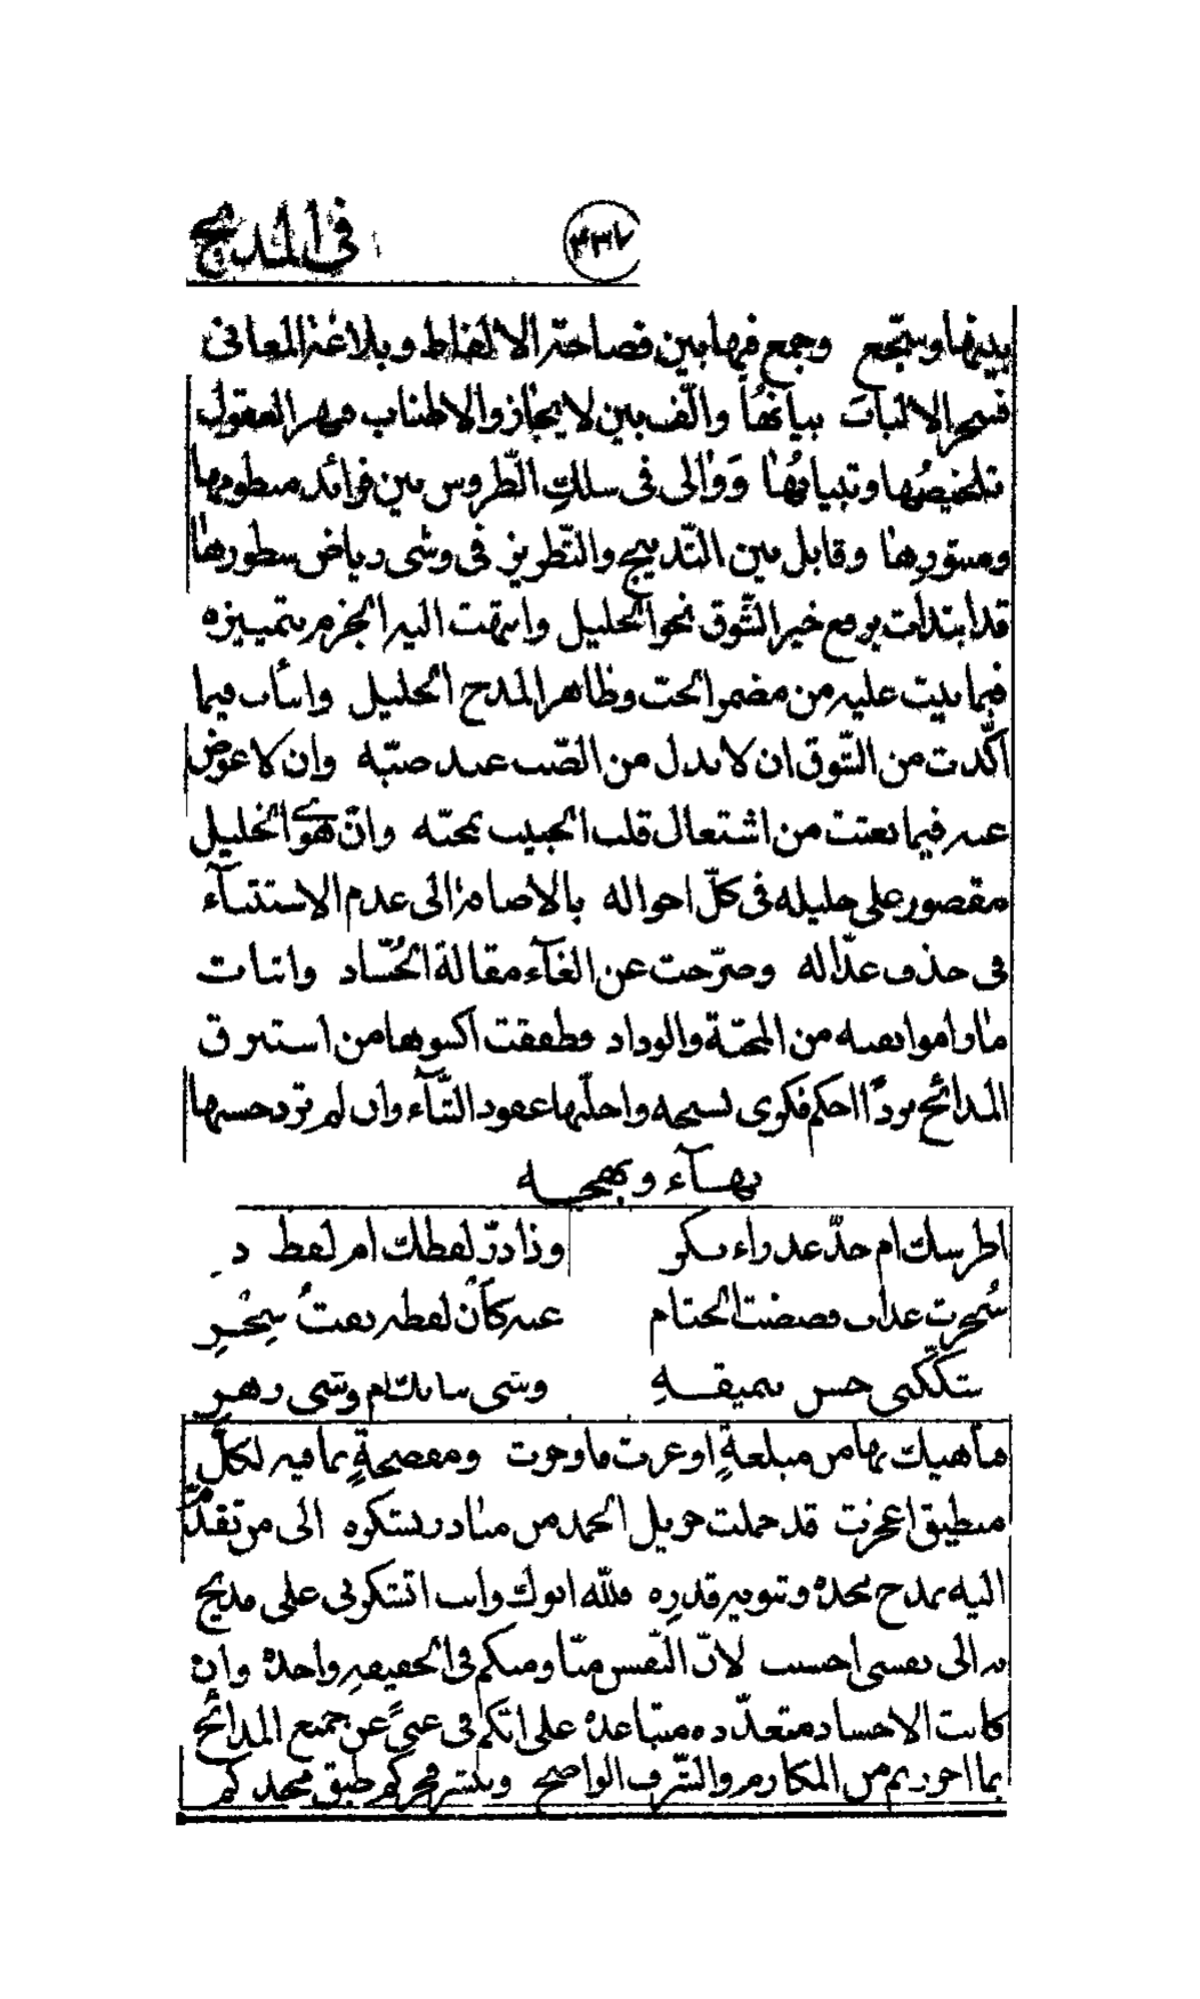 ٤٣٧ في المديح
وتسجع وجمع فيها بين فصاحة الالفاظ وبلاغة المعانى
فسحر الالباب بيانها والّف بين الايجاز والاطناب فبهر العقول
تلخيصُها وتبيانُها وَوٰالى فى سلكِ الطّروس بين فرائد منظومها
ومنثورها وقابل بين التّدبيج والتّطريز فى وشى رياض سطورها
قد ابتدات برفع خبر الشّوق نحو الخليل وانتهت اليه الجزم بتمييزه
فيما بنيت عليه من مضمر الحبّ وظاهر المدح الجليل وانبأت فيما
اكّدت من الشّوق ان لا بدل من الصّب عند صبّه وان لا عوض
عنه فيما نعتت من اشتعال قلب الحبيب بمحبّه وانّ هوى الخليل
مقصور على خليله فى كلّ احواله بالاضافة الى عدم الاستثنآء
فى حذف عذّاله وصرّحت عن الغآء مقالة الحُسّاد واثبات
ما راموا نفيه من المحبّة والوداد فطفقت اكسوها من استبرق
المدائح بردًا احكم فكرى نسجه واحلّيها عقود الثّنآء وان لم تزد حسنها
بهآء وبهجه
اطرسك ام خدّ عذراء بكر وذا درّ لفظك ام لفظ د
سُحرت غداة فضضت الختام عنه كأن لفظه نفثُ سِحْرِ
شككنى حسن تنميقهِ وشى بنانك ام وشى زهرِ
ناهيك بها من مبلغةٍ اوعزت ما وحوت ومفصحةٍ بما فيه لكلّ
منطيق اعجزت قد حملت جزيل الحمد من شكره الى من تقدّم
اليه بمدح مجده وتنويه قدره فلله ابوك وانت اتشكرنى على مديح
به الى نفسى احسنت لانّ النّفس منّا ومنكم فى الحقيقه واحدة وان
كانت الاجساد متعدّده متباعدة على انّكم فى غنىً عن جميع المدائح
بما احرزتم من المكارم والشّرف الواضح وبنشر فخركم طبق مجدكم